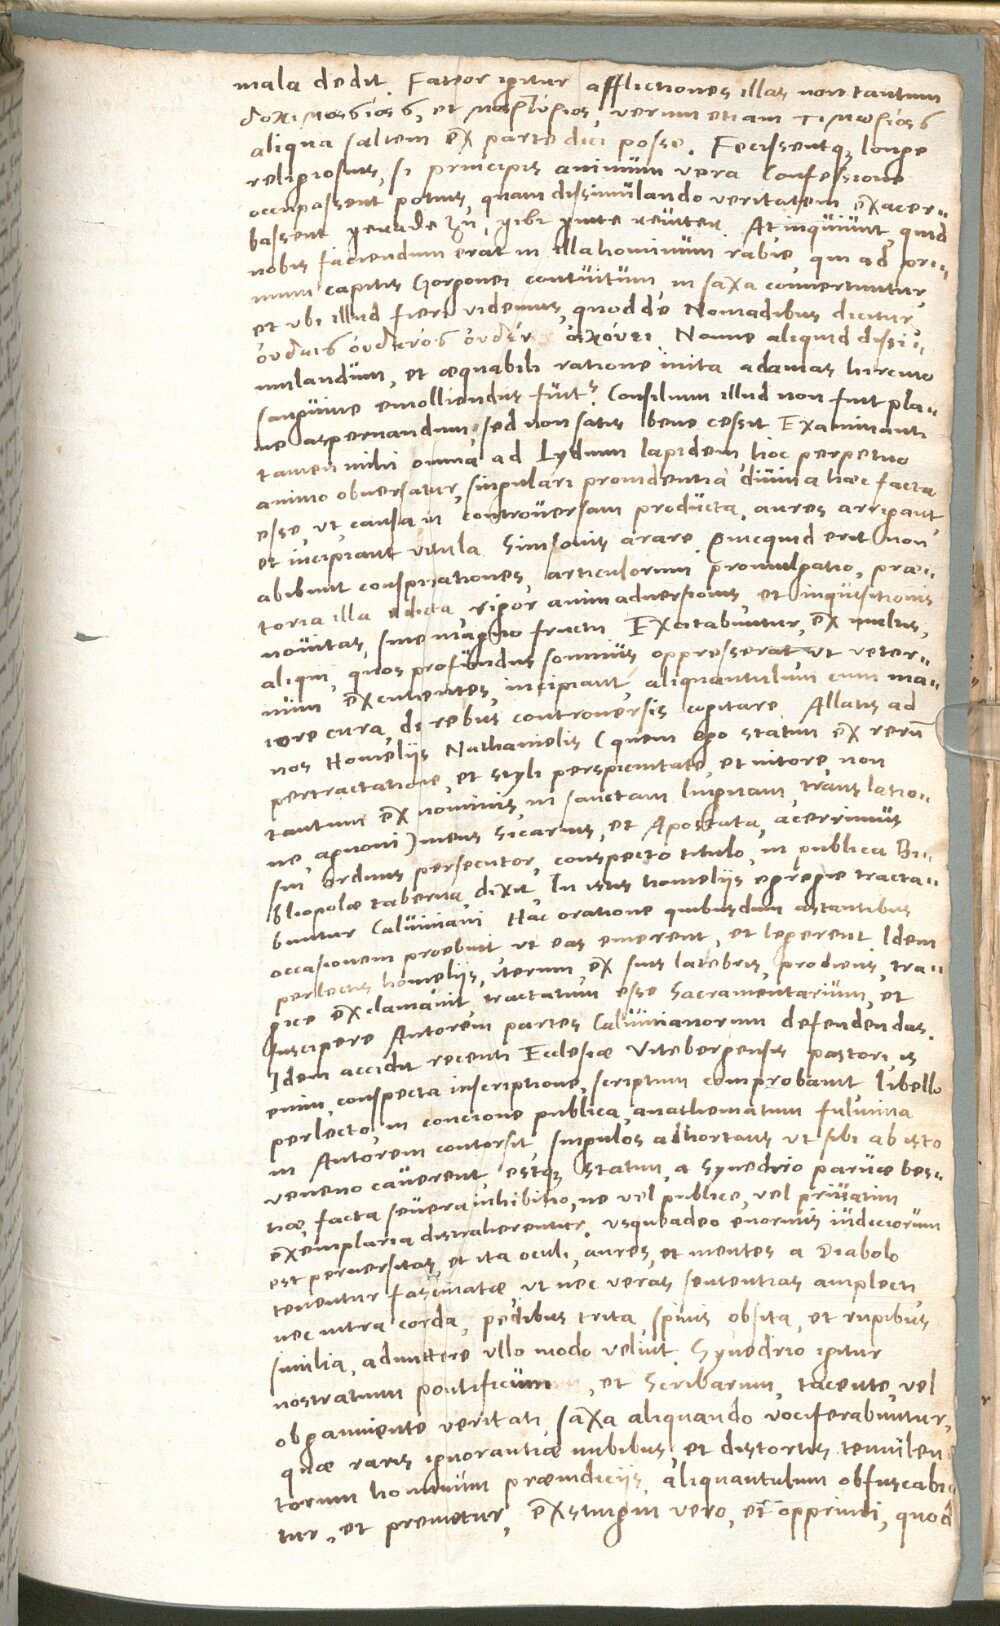 mala dedit. Fateor igitur afflictiones illas non tantum
δοκιμασίας, et μαρτύρια, verum etiam τιμωρίας
aliqua saltem ex parte dici posse. Fecissentq; longe
religiosius, si principis animum vera Confessione
occupassent potius, quam dissimulando veritatem exacer-
bassent At inquiunt, quid
nobis faciendum erat in illa hominum rabie, qui ad pri-
mum capitis Gorgonei contuitum, in saxa convertuntur,
et ubi illud fieri videmus, quod de Nomadibus dicitur,
οὐδεὶς οὐδενὸς οὐδὲν ἀκούει. Nonne aliquid dissi-
mulandum, et æquabili ratione inita adamas hircino
sanguine emolliendus fuit? Consilium illud non fuit pla-
ne aspernandum, sed non satis bene cessit Examinanti
tamen mihi omnia ad Lydium lapidem, hoc perpetuo
animo obversatur, singulari providentia divina hæc facta
esse, ut causa in controversiam producta, aures arrigant,
et incipiant vitula Simsonis arare. Quicquid erit non
abibunt conspirationes, articulorum promulgatio, præ-
toria illa edicta, rigor animadversionis, et inquisitionis
novitas, sine magno fructu. Excitabuntur, ex multis,
aliqui, quos profundus somnus oppresserat ut veter-
num excutientes, incipiant, aliquantulum cum ma-
iore cura, de rebus controversis cogitare. Allatis ad
nos Homeliis Nathanielis (quem ego statim ex rerum
pertractatione, et styli perspicuitate, et nitore, non
tantum ex nominis, in sanctam linguam, translatio-
ne agnovi) meus Sicarius, et Apostata, acerrimus
sui ordinis persecutor, conspecto titulo, in publica Bi-
bliopolæ taberna, dixit, In istis homeliis egregie tracta-
buntur Calviniani Hac oratione quibusdam astantibus
occasionem præbuit ut eas emerent, et legerent Idem
perlectis homeliis, iterum, ex suis latebris, prodiens, tra-
gice exclamavit, tractatum esse Sacramentarium, et
suscipere Autorem partes Calvinianorum defendendas.
Idem accidit recenti Ecclesiæ Vitebergensis pastori, is
enim, conspecta inscriptione, scriptum comprobavit, libello
perlecto, in concione publica, anathematum fulmina
in Autorem contorsit, singulos adhortans ut sibi ab isto
veneno caverent, estq; statim, a Synedrio parvæ bes-
tiæ, facta severa inhibitio, ne vel publice, vel privatim
exemplaria distraherentur. usqueadeo enormis iudiciorum
est perversitas, et ita oculi, aures, et mentes a Diabolo
tenentur fascinatæ, ut nec veras sententias amplecti
nec intra corda, pedibus trita, spinis obsita, et rupibus
similia, admittere ullo modo velint. Synedrio igitur
nostratium pontificum, et Scribarum, tacente, vel
obganniente veritati, saxa aliquando vociferabuntur,
quæ raris ignorantiæ nubibus, et distortis temulen-
torum hominum præiudiciis, aliquantulum obfuscabi-
tur, et premetur, exstingui vero, et opprimi, quod